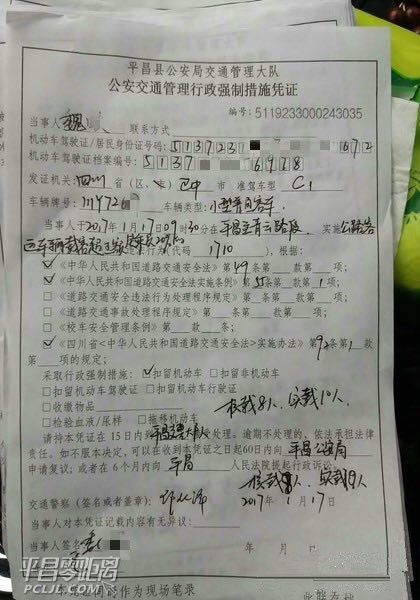 平昌县公安局交通管理大队
公安交通管理行政强制措施凭证
编号:5119233000243035
当事人 魏 联系方式
机动车驾驶证/居民身份证号码: 513723 672
机动车驾驶证档案编号: 5137 6978
发证机关: 四川 省(区、市) 巴中 市 准驾车型 C1
车辆牌号: 川Y72 车辆类型: 小型普通客车
当事人于2017年1月17日09时30分在平昌县青云路段 实施公路客
运车辆载客超过 20% 行为(代码 1710 )
√《中华人民共和国道路交通安全法》第49条第 款第 项;
√《中华人民共和国道路交通安全法实施条例》第55条第 款第1项;
□《道路交通安全违法行为处理程序规定》第 条第 款第 项;
□《道路交通事故处理程序规定》第 条第 款第 项;
□《校车安全管理条例》第 条第 款;
√《四川省<中华人民共和国道路交通安全法>实施办法》第 条第1款
第 项的规定;
采取行政强制措施: √扣留机动车 □扣留非机动车
□扣留机动车驾驶证 □扣留机动车行驶证
□收缴物品 核载8人、实载10人
□检验血液/尿样 □拖移机动车
请持本凭证在15日内到 平昌 大队 接受处理。逾期不处理的,依法承担法律
责任。如不服本决定,可以在收到本凭证之日起60日内向 平昌公安局
申请复议;或者在6个月内向 平昌 人民法院提起行政诉讼。
核载 人、实载 人
交通警察(签名或者盖章): 2017年1月17日
当事人对本凭证记载内容有无异议:
当事人签名 年 月 日
作为现场笔录
平昌零距离
PCLJL.COM